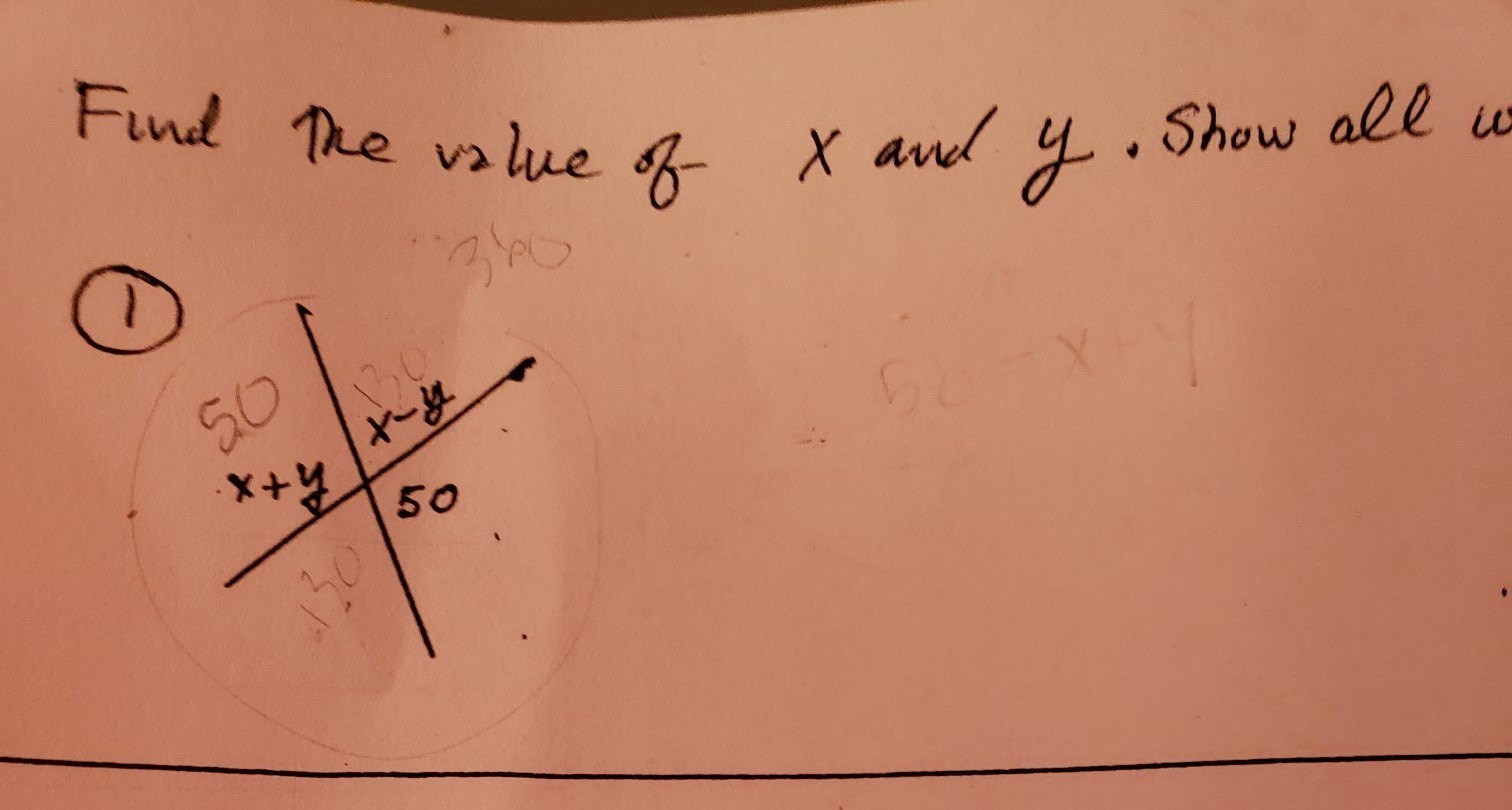 Find The value of x and y. Show all
360
①
50
130
x-y
50 - x+y
x+y
50
130